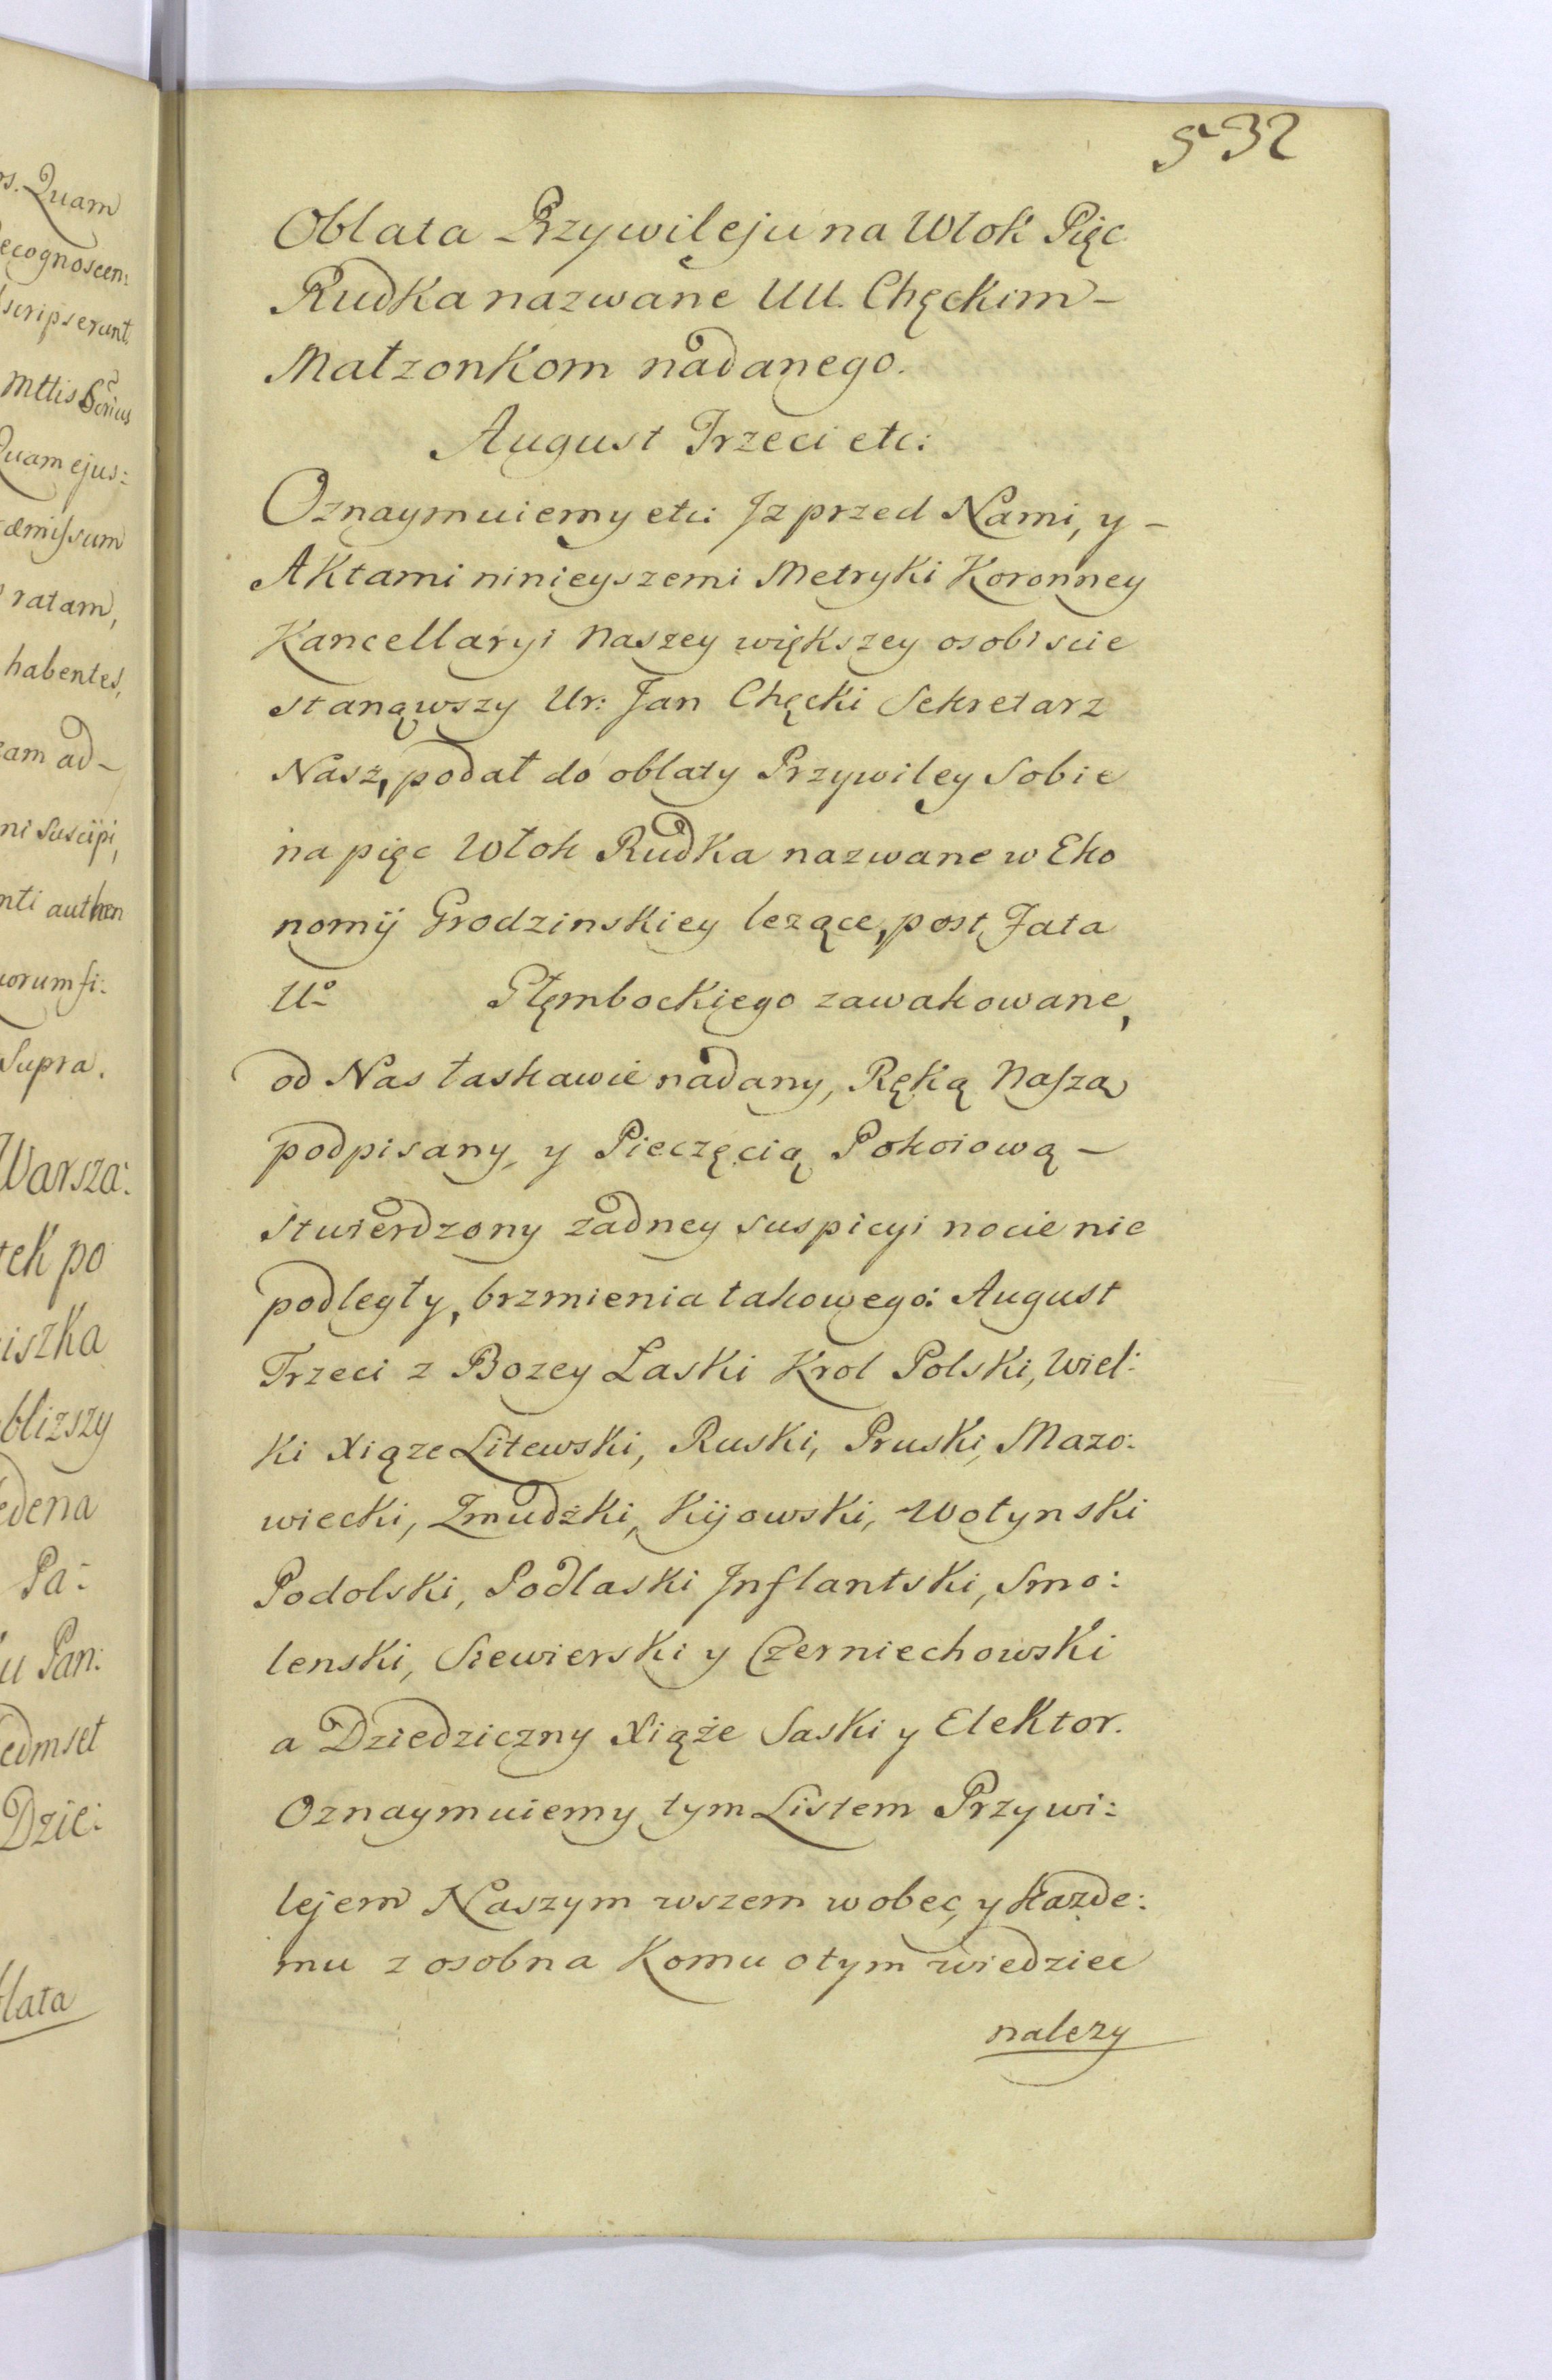 s. Quam
ecognoscen:
scripserunt
Mttis
Quam ejus:
æmissum
ratam,
habentes,
eam ad-
ni suscipi,
nti authen
uorum si:
Supra.
Warsza:
tek po
iszka
blizszy
edena
Pa:
u Pan:
edmset
Dzie:
lata
532
Oblata Przywileju na Włok Pięc
Rudka nazwane UU. Chęckim -
Małzonkom nadanego.
August Trzeci etc:
Oznaymuiemy etc: Jz przed Nami, y -
Aktami ninieyszemi Metryki Koronney
Kancellaryi Naszey większey osobiscie
stanąwszy Ur: Jan Chęcki Sekretarz
Nasz, podał do oblaty Przywiley Sobie
na pięc Włok Rudka nazwane w Eko
nomij Grodzinskiey lezące, post Fata
Uo Głęmbockiego zawakowane,
od Nas łaskawie nadany, Ręką Naszą
podpisany, y Pieczęcią Pokoiową -
stwierdzony zadney suspicyi nocie nie
podległy, brzmienia takowego: August
Trzeci z Bozey Laski Krol Polski, Wiel:
ki Xiąze Litewski, Ruski, Pruski, Mazo:
wiecki, Zmudzki, Kijowski, Wołynski
Podolski, Podlaski Jnflantski, Smo:
lenski, Siewierski y Czerniechowski
a Dziedziczny Xiąże Saski y Elektor.
Oznaymuiemy tym Listem Przywi:
lejem Naszym wszem wobec, y każde:
mu z osobna Komu o tym wiedziec
nalezy